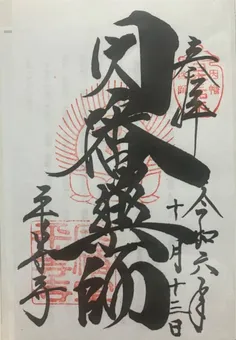 奉拝
令和六年
十一月十三日
因幡薬師
平等寺